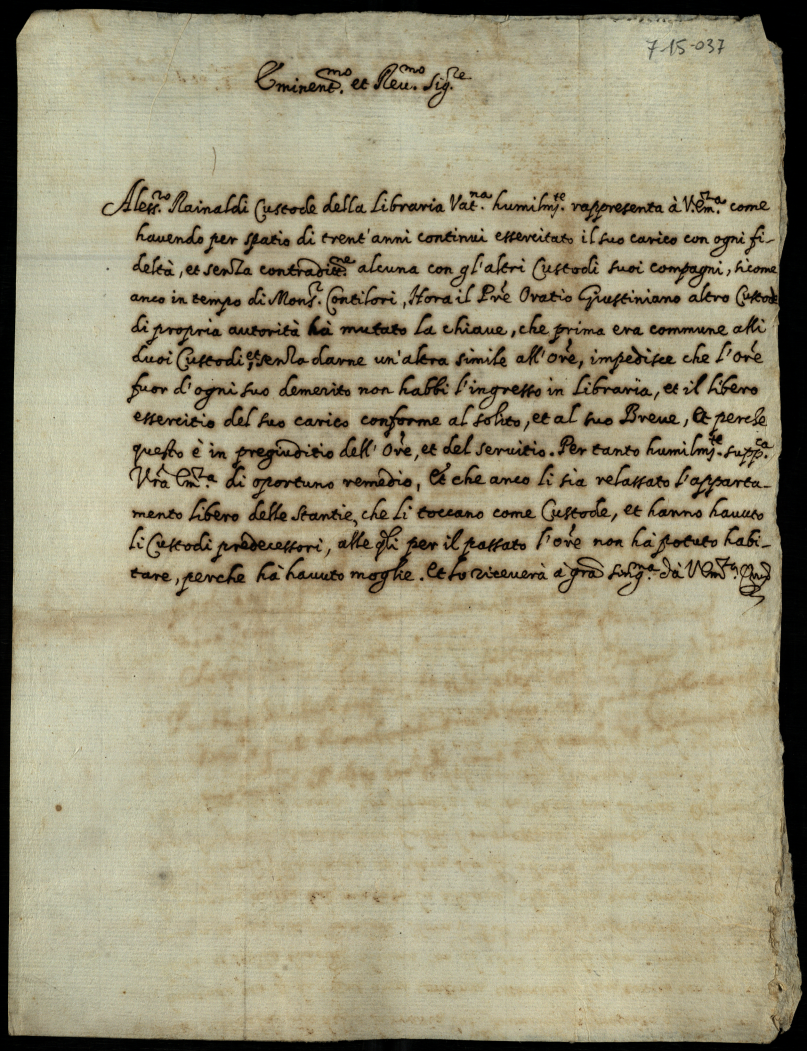 7-15-037
Eminent.mo et Reu.mo Sig.re
Aless.ro Rainaldi Custode della Libraria Vat.na humilm.te rappresenta à V.Em.za come
hauendo per spatio di trent'anni continui essercitato il suo carico con ogni fi-
deltà, et senza contradit.ne alcuna con gl'altri Custodi suoi compagni, sicome
anco in tempo di Mons.r Contilori, Hora il Pre Oratio Giustiniano altro Custode
di propria autorità hà mutato la chiaue, che prima era commune alli
duoi Custodi, et senza darne un'altra simile all'Ore, impedisce che l'Ore
fuor d'ogni suo demerito non habbi l'ingresso in Libraria, et il libero
essercitio del suo carico conforme al solito, et al suo Breue, Et perche
questo è in pregiuditio dell'Ore, et del seruitio. Per tanto humilm.te supp.ca
Vra Em.za di oportuno remedio, Et che anco li sia relassato l'apparta-
mento libero delle Stantie, che li toccano come Custode, et hanno hauuto
li Custodi predecessori, alle qli per il passato l'Ore non hà potuto habi-
tare, perche hà hauuto moglie. Et lo riceuerà à gra sing.na dà V.Em.za